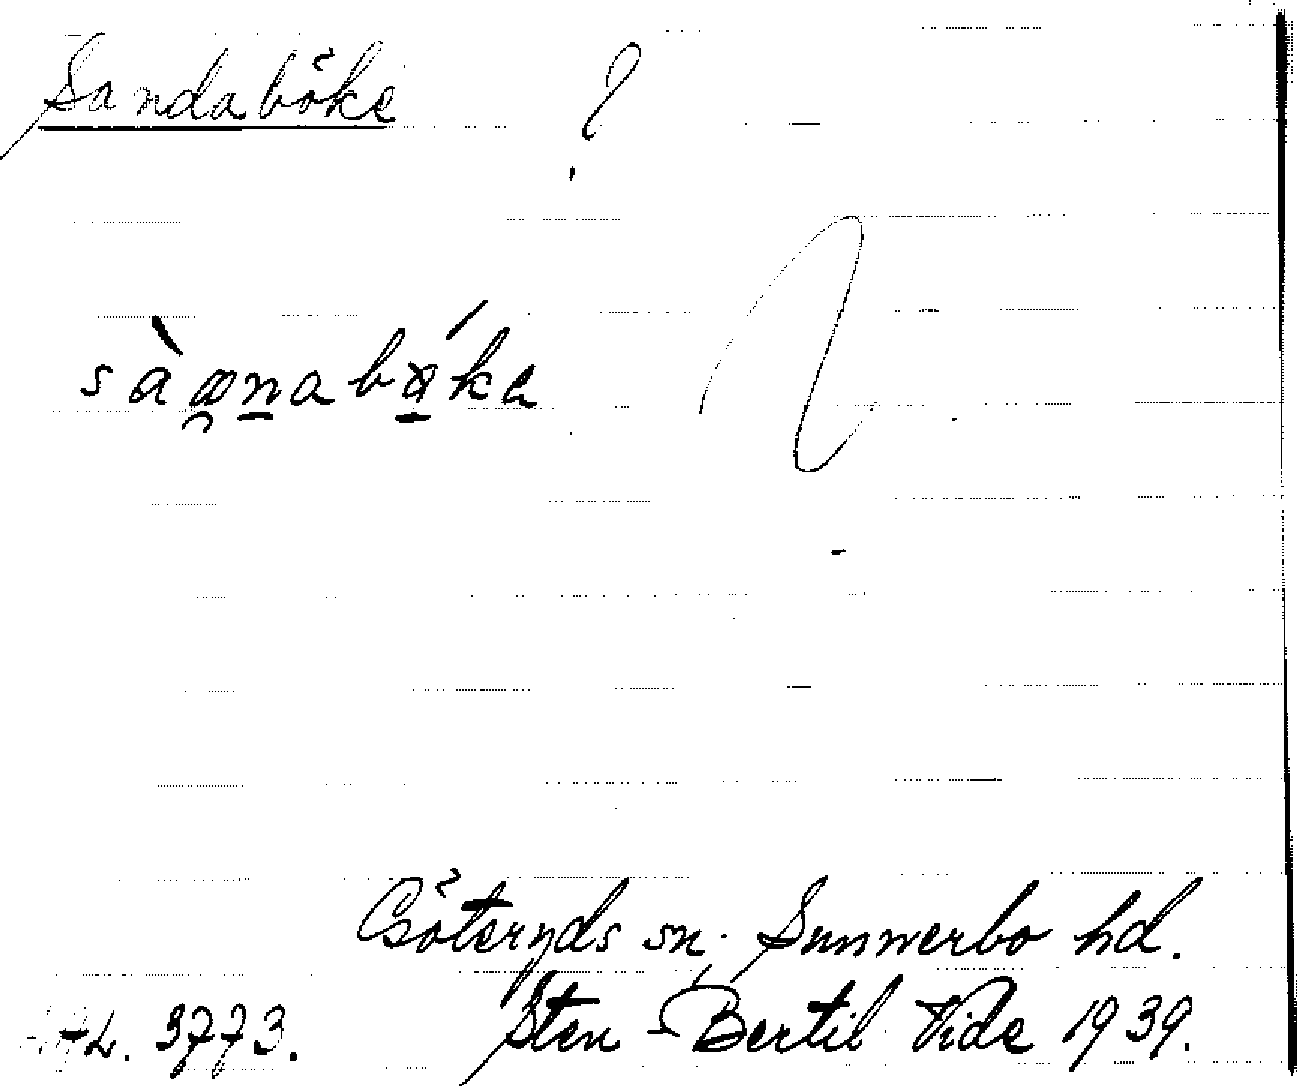 Sandaböke ?
sàa̯n̲abǿ̲ka
Göteryds sn. Sunnerbo hd.
3773. Sten-Bertil Vide 1939.